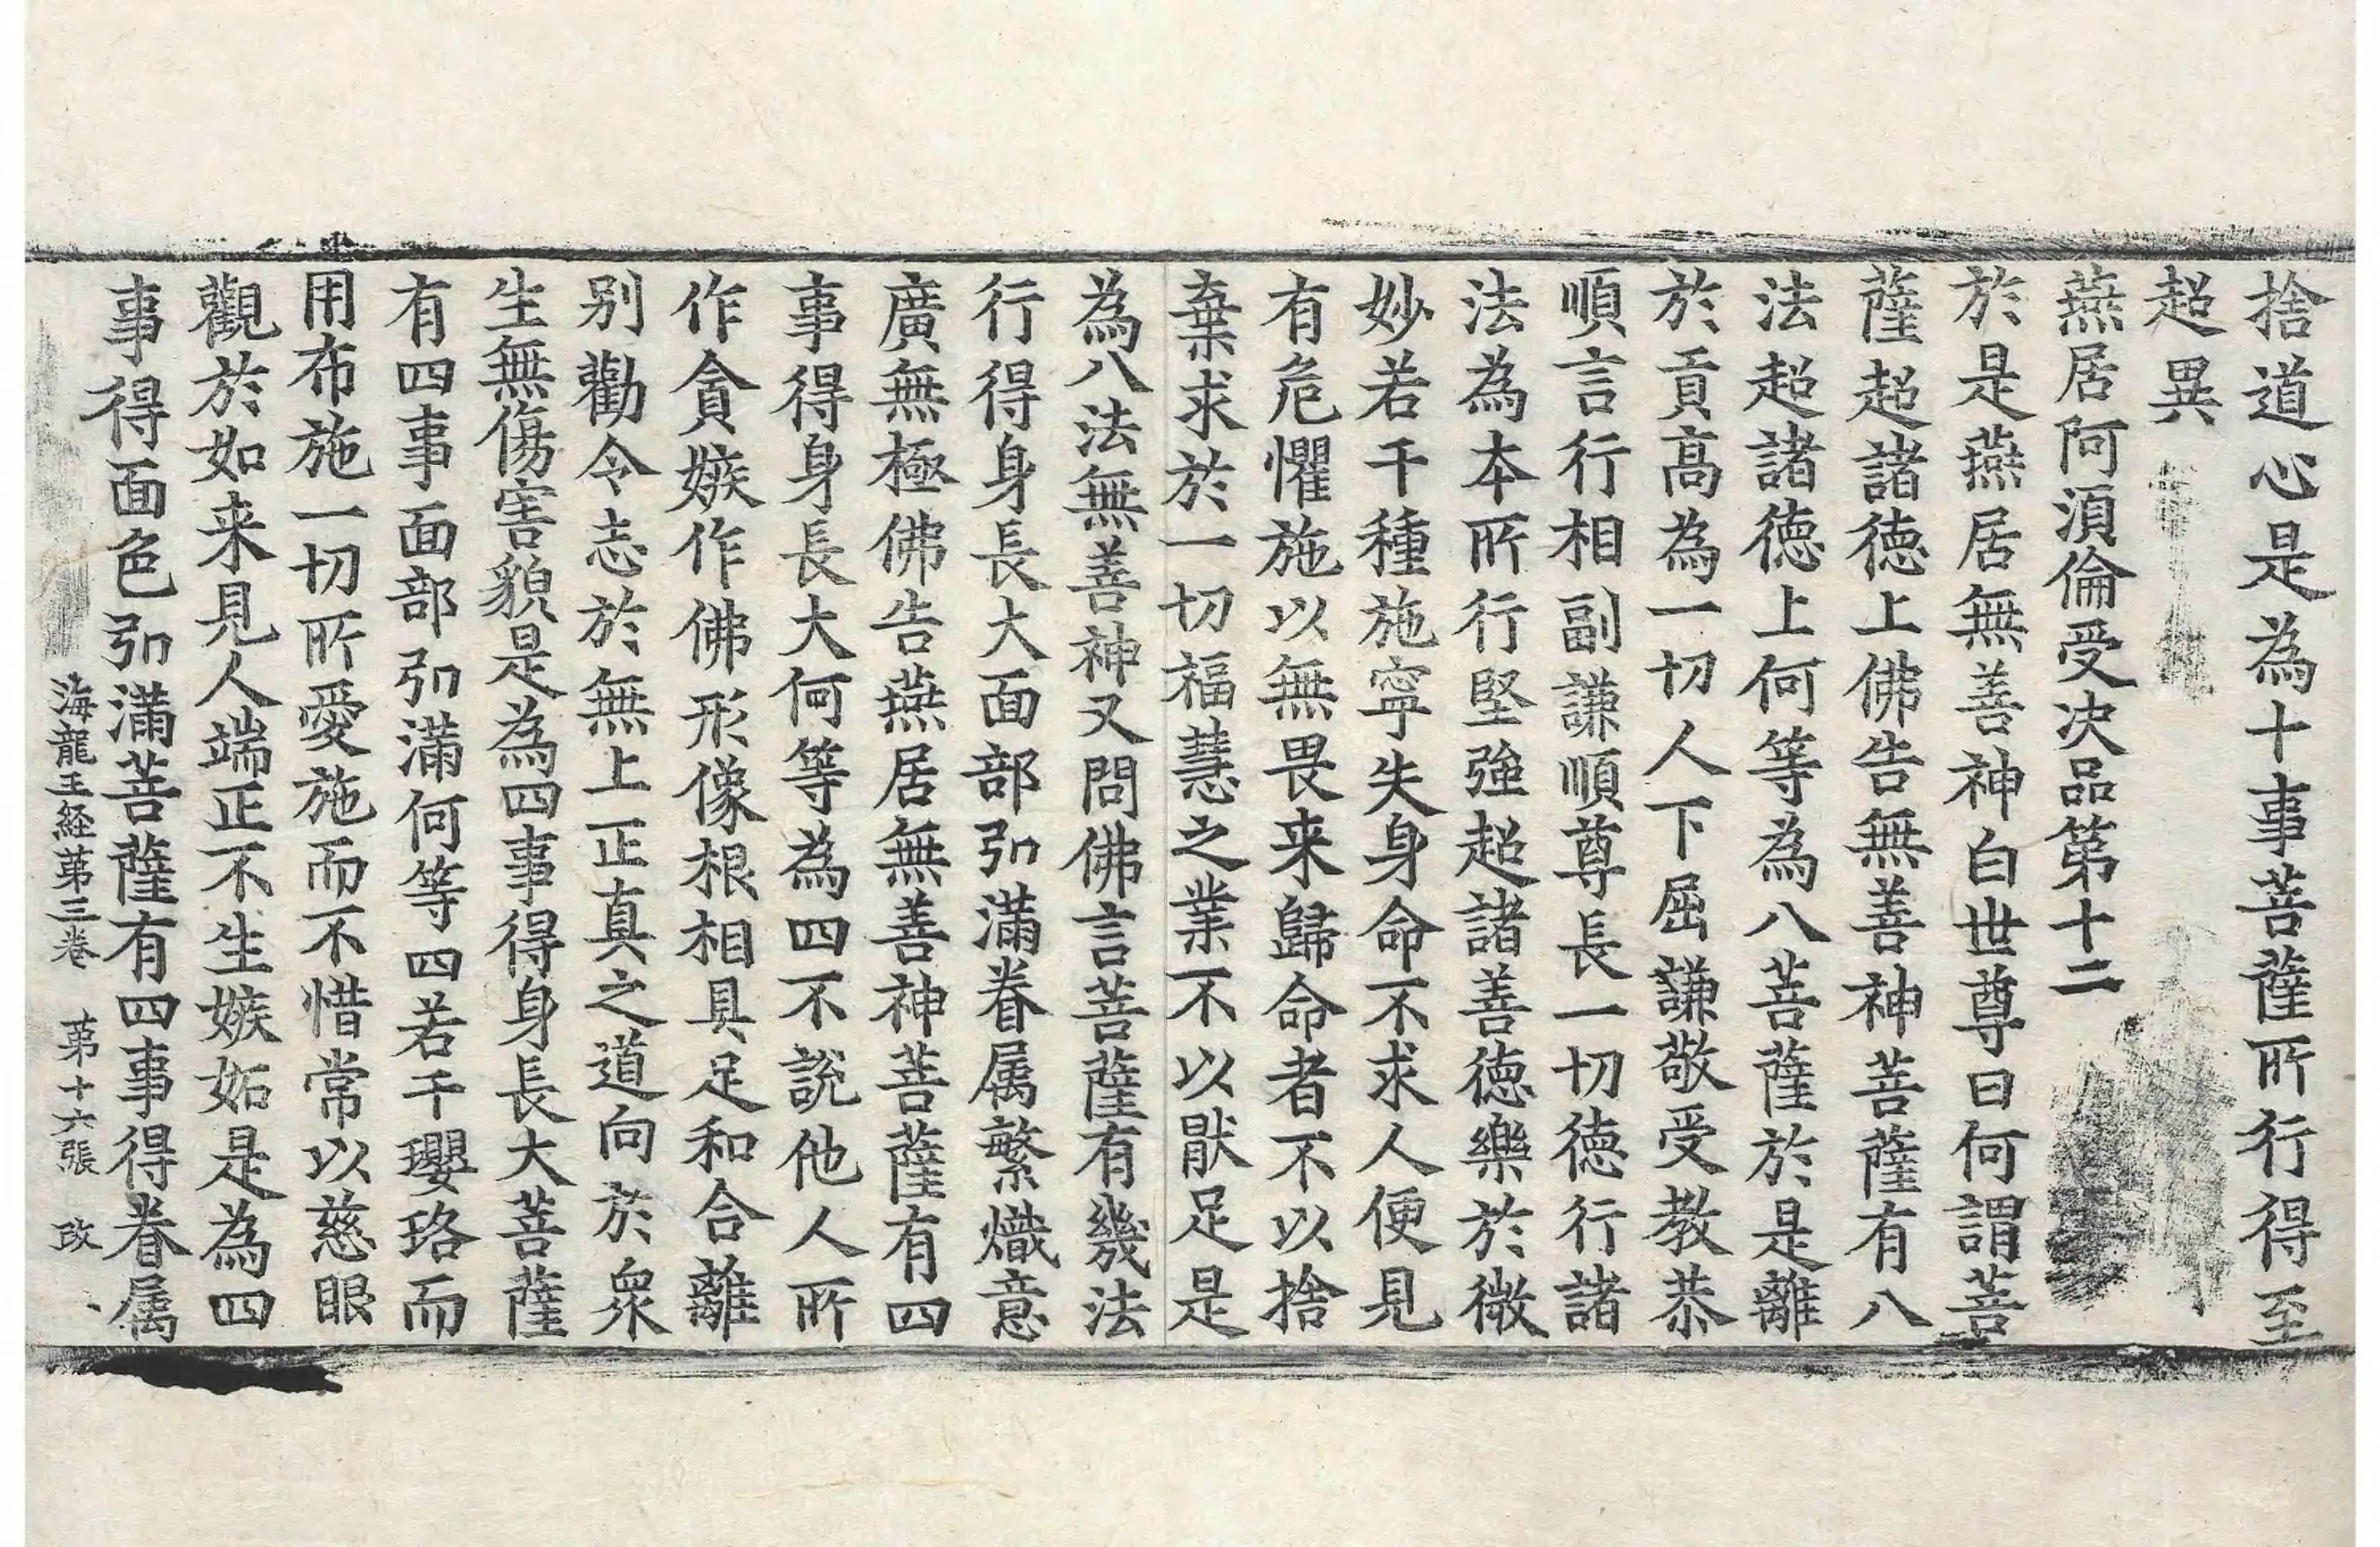 捨道心是為十事菩薩所行得至
超異
燕居阿湏倫受决品第十二
於是燕居無善神白世尊曰何謂菩
薩超諸徳上佛告無善神菩薩有八
法超諸徳上何等為八菩薩於是離
於貢高為一切人下屈謙敬受教恭
順言行相副謙順尊長一切徳行諸
法為本所行堅強超諸善徳樂於微
妙若干種施寧失身命不求人便見
有危懼施以無畏来歸命者不以捨
棄求於一切福慧之業不以猒足是
為八法無善神又問佛言菩薩有幾法
行得身長大面部弘滿眷属繁熾意
廣無極佛告燕居無善神菩薩有四
事得身長大何等為四不說他人所
作貪嫉作佛形像根相具足和合離
别勸令志於無上正真之道向於衆
生無傷害貌是為四事得身長大菩薩
有四事面部弘滿何等四若干瓔珞而
用布施一切所愛施而不惜常以慈眼
觀於如来見人端正不生嫉妬是為四
事得面色弘滿菩薩有四事得眷属
海龍王経苐三卷　苐十六張　改